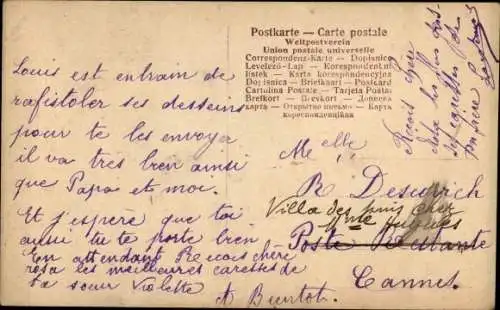 Postkarte — Carte postale
Weltpostverein
Union postale universelle
Correspondenz-Karte — Dopisnice
Levelező-Lap — Korespondent
listek — Karta korespondencyjna
Dopisnica — Briefkaart — Postcard
Cartolina Postale — Tarjeta Posta
Brefkort — Brevkort — Довеска
карта — Открытно письмо — Карта
кореспонденційна
Louis est entrain de
rafistoler ses desseins
pour te les envoyé
il va très bien ainsi
que Papa et moi.
Et j'espère que toi
aussi tu te porte bien
En attendant Recois chère
rosa les meilleures caresses de
ta sœur Violette
A Bientot.
Recois chère
les plus
ton frère
Melle
R Desurich
Villa des pins chez
Mme Hugues
Poste Restante
Cannes.